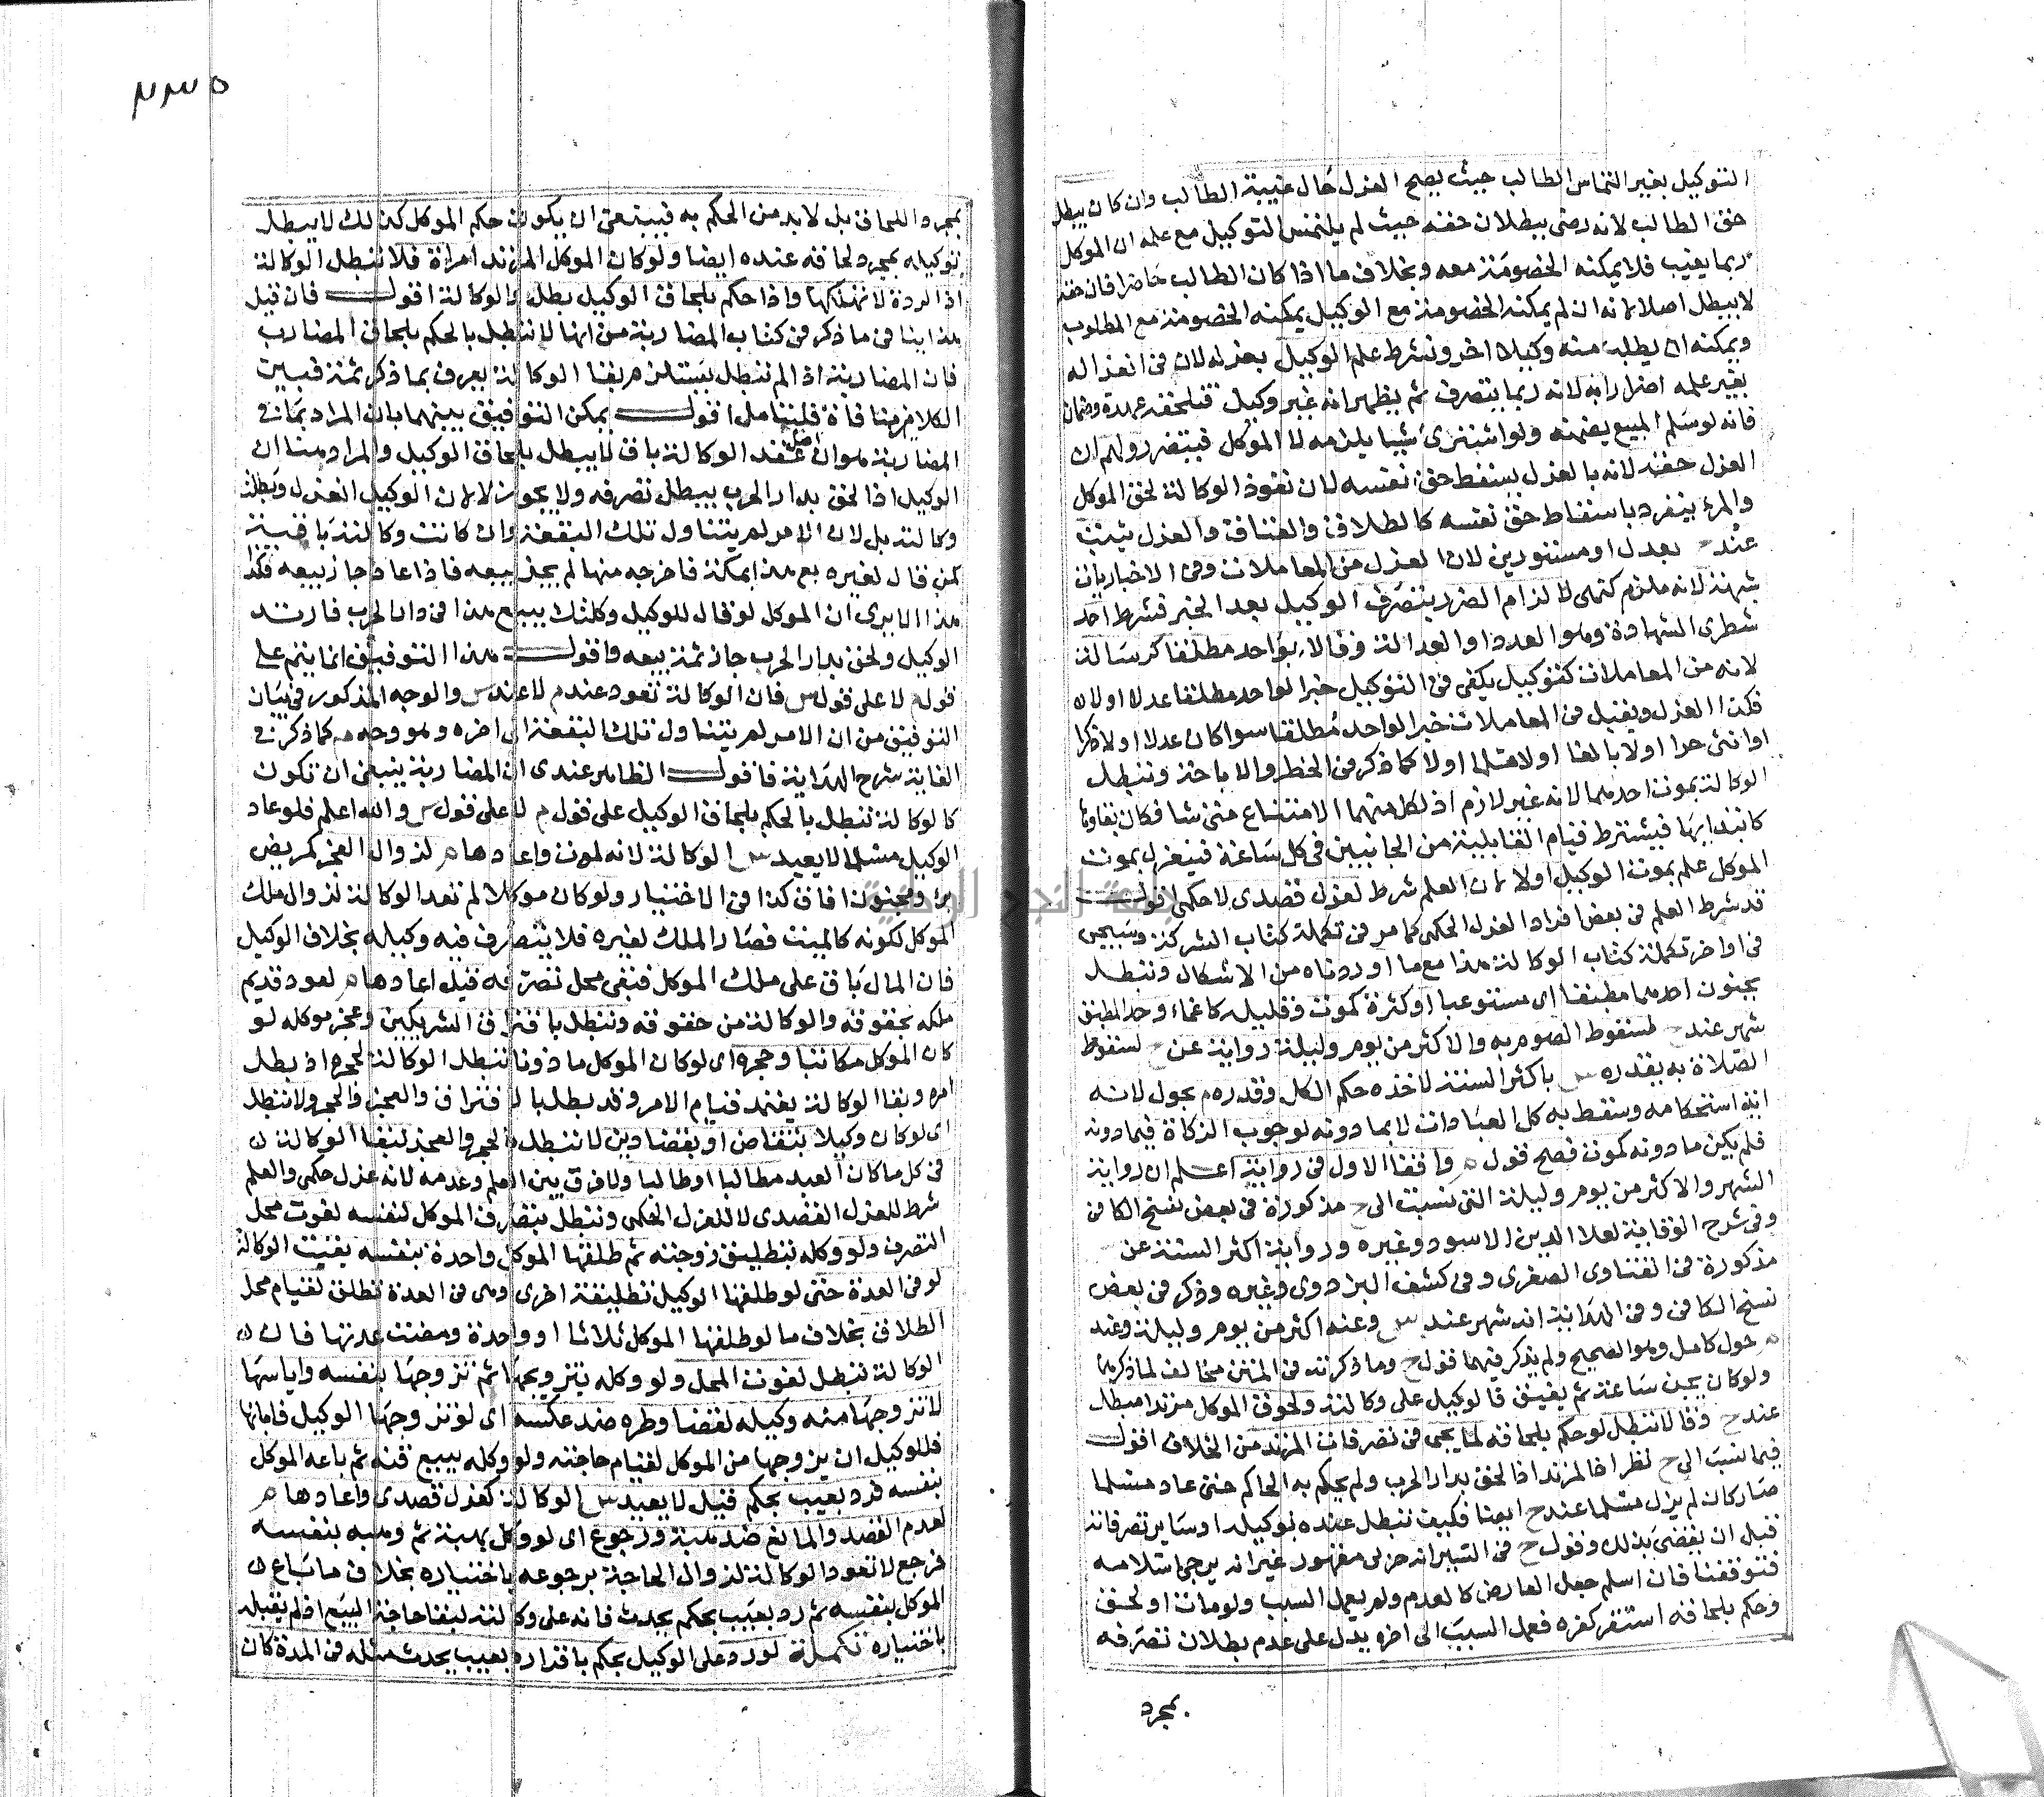 التوكيل بغير التماس الطالب حيث يصح العزل حال غيبة الطالب وان كان يبطل
حق الطالب لانه رضي ببطلان حقه حيث لم يلتمس التوكيل مع علمه ان الموكل
ربما يغيب فلا يمكنه الخصومة معه وبخلاف ما اذا كان الطالب حاضرا فان حقه
لا يبطل اصلا لانه ان لم يمكنه الخصومة مع الوكيل يمكنه الخصومة مع المطلوب
ويمكنه ان يطلب منه وكيلا اخر وشرط علم الوكيل بعزله لان في انعزاله
بغير علمه اضرارا به لانه ربما يتصرف ثم يظهر انه غير وكيل فتلحقه عهدة وضمان
فانه لو سلم المبيع يضمنه ولو اشترى شيا يلزمه لا الموكل فيتضرر ولهم ان
العزل حقه لانه بالعزل يسقط حق نفسه لان نفوذ الوكالة لحق الموكل
والمرء ينفرد باسقاط حق نفسه كالطلاق والعتاق والعزل يثبت
عند ح بعدل او مستورين لان العزل من المعاملات وفي الاخبار بان
شبهة لانه ملزم كتملي لالزام الضرر بتصرف الوكيل بعد الخبر فشرط احد
شطري الشهادة وهو العدد او العدالة وقالا بواحد مطلقا كرسالة
لانه من المعاملات كتوكيل يكفي في التوكيل خبر الواحد مطلقا عدلا اولا
فكذا العزل ويقبل في المعاملات خبر الواحد مطلقا سوا كان عدلا اولا ذكرا
او انثى حرا اولا بالغا اولا مسلما اولا كما ذكر في الحظر والاباحة وتبطل
الوكالة بموت احدهما لانه غير لازم اذ لكل منهما الامتناع متى شا فكان بقاوها
كابتدايها فيشترط قيام القابلية من الجانبين في كل ساعة فينعزل بموت
الموكل علم بموت الوكيل اولا لان العلم شرط لعزل قصدي لا حكمي اقول
قد شرط العلم في بعض افراد العزل الحكمي كما مر في تكملة كتاب الشركة وسيجئ
في اواخر تكملة كتاب الوكالة هذا مع ما اوردناه من الاشكال وتبطل
بجنون احدهما مطبقا اي مستوعبا او كثرة كموت وقليله كاغماء وحد المطبق
شهر عند ح لسقوط الصوم به والاكثر من يوم وليلة رواية عن ح لسقوط
الصلاة به بقدره س باكثر السنة لاخذه حكم الكل وقدره م بحول لانه
انه استحكامه وسقط به كل العبادات لا بما دونه لوجوب الزكاة فيما دونه
فلم يكن ما دونه كموت فصح قول م وافقا الاول في رواية اعلم ان رواية
الشهر والاكثر من يوم وليلة التي نسبت الى ح مذكورة في بعض نسخ الكافي
وفي شرح الوقاية لعلا الدين الاسود وغيره ورواية اكثر السنة عن
مذكورة في الفتاوى الصغرى وفي كشف البزدوي وغيره وذكر في بعض
نسخ الكافي وفي الهداية انه شهر عند س وعنه اكثر من يوم وليلة وعند
م حول كامل وهو الصحيح ولم يذكر فيهما قول ح وما ذكرته في المتن مخالف لما ذكر هنا
ولو كان يجن ساعة ثم يفيق فالوكيل على وكالته ولحوق الموكل مرتدا مبطل
عند ح وقالا تبطل لو حكم بلحاقه لما يجي في تصرفات المرتد من الخلاف اقول
فيما نسب الى ح نظر اذ المرتد اذا لحق بدار الحرب ولم يحكم به الحاكم حتى عاد مسلما
صار كان لم يزل مسلما عند ح ايضا فكيف تبطل عنده توكيله او ساير تصرفاته
قبل ان يقضى بذلك وقول ح في السير انه حربي مقهور غير انه يرجى اسلامه
فتوقفنا فان اسلم جعل العارض كالعدم ولم يعمل السبب ولو مات او لحق
وحكم بلحاقه استقر كفره فعمل السبب الى اخره يدل على عدم بطلان تصرفه
بمجرد
٢٣٥
بمجرد اللحاق بل لا بد من الحكم به فينبغي ان يكون حكم الموكل كذلك لا يبطل
توكيله بمجرد لحاقه عنده ايضا ولو كان الموكل المرتد امراة فلا تبطل الوكالة
اذ الردة لا تهلكها واذا حكم بلحاق الوكيل بطل والوكالة اقول فان قيل
هذا ينافي ما ذكر في كتاب المضاربة من انها لا تبطل بالحكم بلحاق المضارب
فان المضاربة اذا لم تبطل يستلزم بقا الوكالة يعرف بما ذكر ثمة فبين
الكلامين منافاة فليتامل اقول يمكن التوفيق بينهما بان المراد بما في
المضاربة هو ان اصل عقد الوكالة باق لا يبطل بلحاق الوكيل والمراد هنا ان
الوكيل اذا لحق بدار الحرب يبطل تصرفه ولا يجوز لا لان الوكيل انعزل وبطلت
وكالته بل لان الامر لم يتناول تلك البقعة وان كانت وكالته باقية
كمن قال لغيره بع هذا بمكة فاخرجه منها لم يجز بيعه فاذا عاد جاز بيعه فكذا
هذا الا يرى ان الموكل لو قال للوكيل وكلتك ببيع هذا في دار الحرب فارتد
الوكيل ولحق بدار الحرب جاز ثمة بيعه واقول هذا التوفيق انما يتم على
قول م لا على قول س فان الوكالة تعود عند م لا عند س والوجه المذكور في بيان
التوفيق من ان الامر لم يتناول تلك البقعة الى اخره وهو وجه م كما ذكر في
الغاية شرح الهداية فاقول الظاهر عندي ان المضاربة ينبغي ان تكون
كالوكالة تبطل بالحكم بلحاق الوكيل على قول م لا على قول س والله اعلم فلو عاد
الوكيل مسلما لا يعيد س الوكالة لانه لموت واعادها م لزوال العجز كمريض
برئ ومجنون افاق كذا في الاختيار ولو كان موكلا لم تعد الوكالة لزوال ملك
الموكل لكونه كالميت فصار الملك لغيره فلا يتصرف فيه وكيله بخلاف الوكيل
فان المال باق على ملك الموكل فبقي محل تصرفه قيل اعادها م لعود قديم
ملكه بحقوقه والوكالة من حقوقه وتبطل بافتراق الشريكين وعجز موكله لو
كان الموكل مكاتبا وحجره اي لو كان الموكل ماذونا تبطل الوكالة لحجره اذ بطل
امره وبقا الوكالة يعتمد قيام الامر وقد بطل بالافتراق والعجز والحجر ولا تبطل
اي لو كان وكيلا بتقاض او بقضا دين لا تبطل بالحجر والعجز لبقا الوكالة
في كل ما كان العبد مطالبا او طالبا ولا فرق بين العلم وعدمه لانه عزل حكمي والعلم
شرط للعزل القصدي لا للعزل الحكمي وتبطل بتصرف الموكل لنفسه لفوت محل
التصرف ولو وكله بتطليق زوجته ثم طلقها الموكل واحدة بنفسه بقيت الوكالة
لو في العدة حتى لو طلقها الوكيل تطليقة اخرى وهي في العدة تطلق لقيام محل
الطلاق بخلاف ما لو طلقها الموكل ثلاثا او واحدة ومضت عدتها فان
الوكالة تبطل لفوت المحل ولو وكله بتزويجها ثم تزوجها بنفسه وابانها
لا تزوجها منه وكيله لقضا وطره ضد عكسه اي لو تزوجها الوكيل فابانها
فللوكيل ان يزوجها من الموكل لقيام حاجته ولو وكله ببيع قنه ثم باعه الموكل
بنفسه فرد بعيب بحكم قيل لا يعيد س الوكالة كعزل قصدي واعادها م
لعدم القصد والمانع ضد هبة ورجوع اي لو وكل بهبة ثم وهبه بنفسه
فرجع لا تعود الوكالة لزوال الحاجة برجوعه باختياره بخلاف ما باع
الموكل بنفسه ثم رد بعيب بحكم يحدث فانه على وكالته لبقا حاجة البيع اذ لم يقبله
باختياره تكملة لو رد على الوكيل بحكم باقراره بعيب يحدث مثله في المدة كان